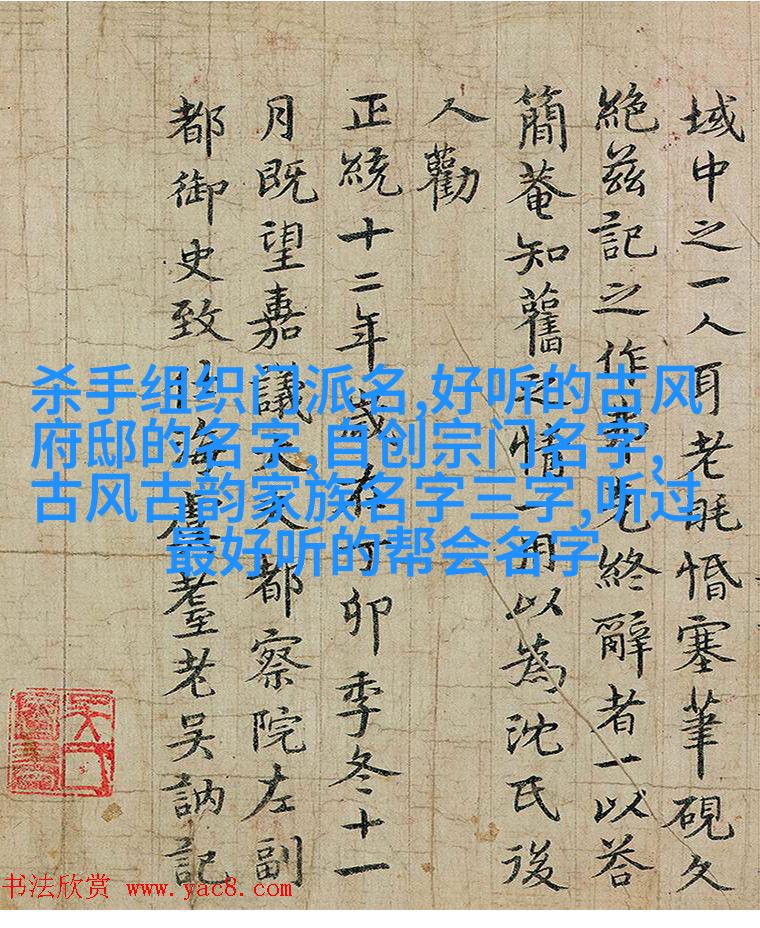 域中之一人耳老眊惛塞筆硯久
絶茲記之作弗克終辭者一以荅
簡菴知舊之情一用以為沈氏後
人勸
正統十二年歲在丁卯季冬十一
月既望嘉議大夫都察院左副
都御史致仕海虞耋老吳訥記
杀手组织门派名,好听的古风
府邸的名字,自创宗门名字,
古风古韵家族名字三字,听过
最好听的帮会名字
书法欣赏 www.yac8.com